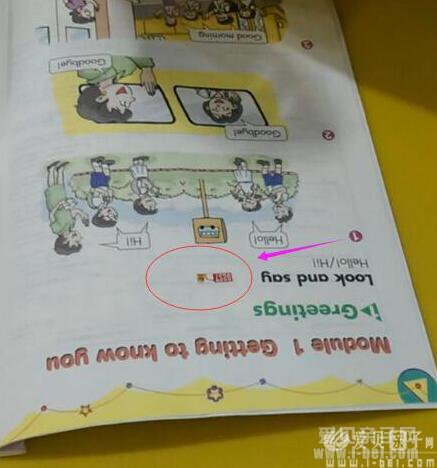 Module 1 Getting to know you
Greetings
Look and say
Hello!/Hi!
1
Hello!
Hi!
2
Goodbye!
Goodbye!
3
Good morning
爱贝亲子网
www.i-bei.com